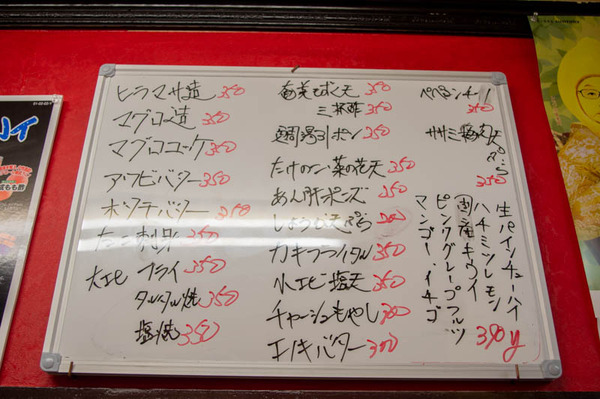 ヒラマサ造 350
マグロ造 350
マグロユッケ 350
アワビバター 350
ホタテバター 350
たこ刺身 350
大エビ フライ 350
タルタル焼 350
塩焼 350
奄美もずく天 350
三杯酢 350
湯引ポン 350
たけのこ 菜の花天 350
あん肝ポンズ 350
しょうが天ぷら
カキフライタル 350
小エビ塩天 350
チャーシューもやし 300
エノキバター 300
350
ササミ 天
350
生パインチューハイ
ハチミツレモン
国産キウイ
ピンクグレープフルツ
マンゴー イチゴ
390y